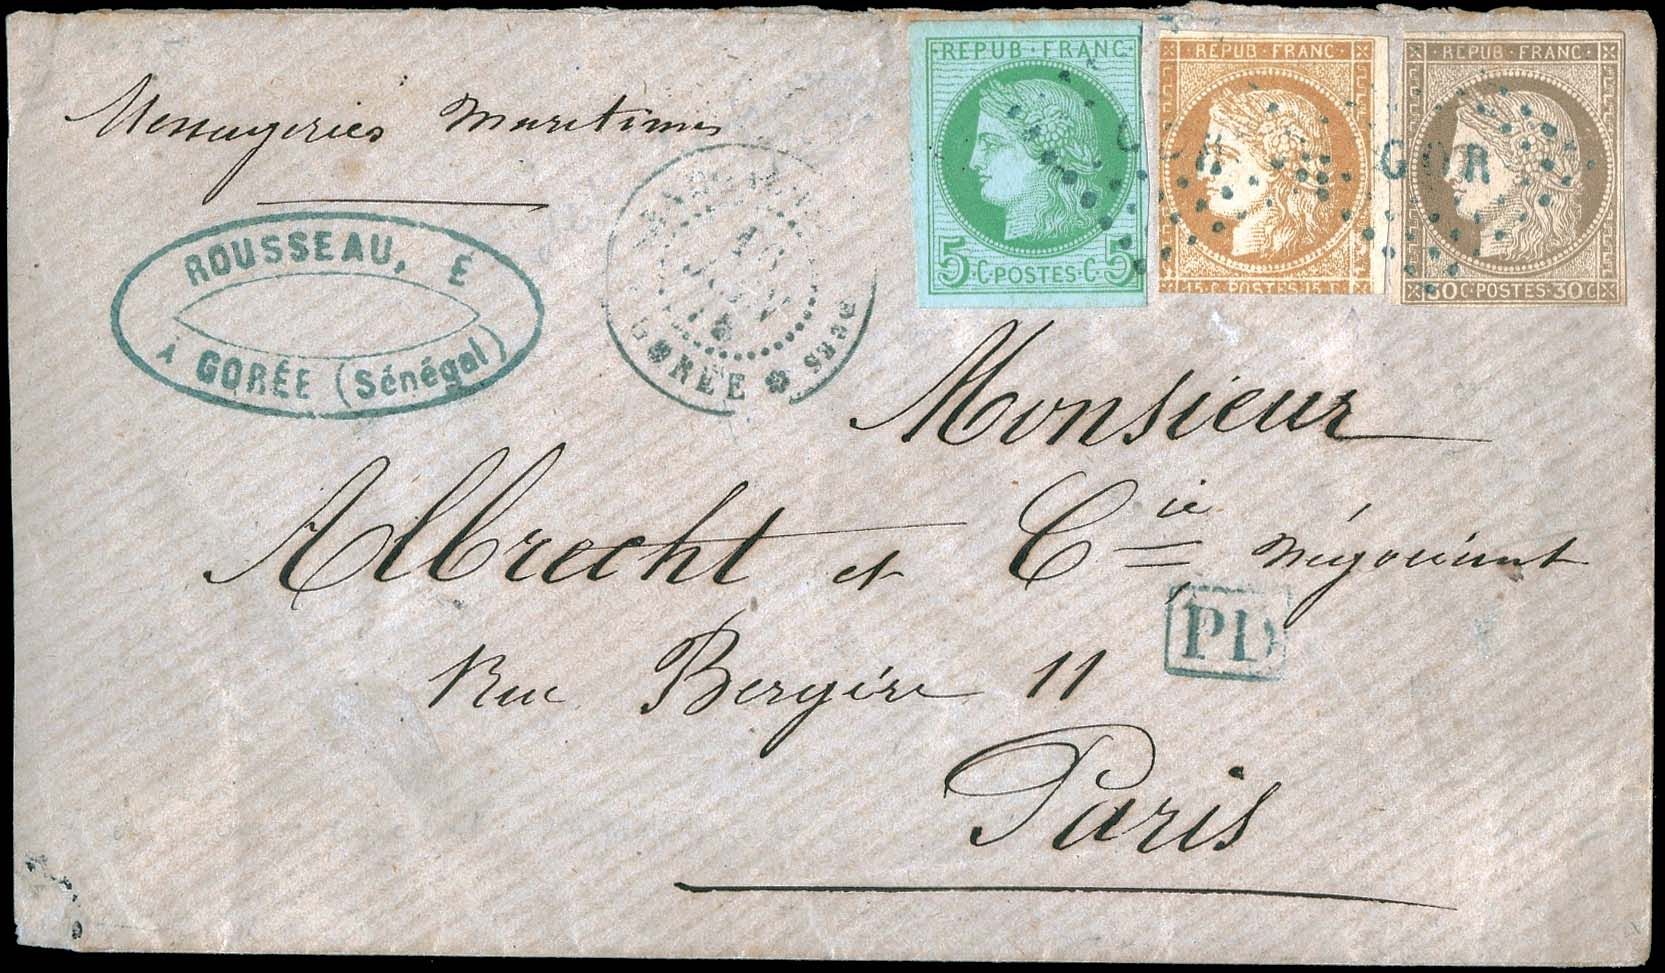 Messageries Maritimes
REPUB · FRANC ·
5 · C · POSTES · C · 5
REPUB · FRANC
15 C · POSTES 15 C
REPUB · FRANC
30 C · POSTES · 30 C
GOR
ROUSSEAU, E
À GORÉE (Sénégal)
GORÉE
Monsieur
Albrecht et Cie négociant
PD
Rue Bergère 11
Paris